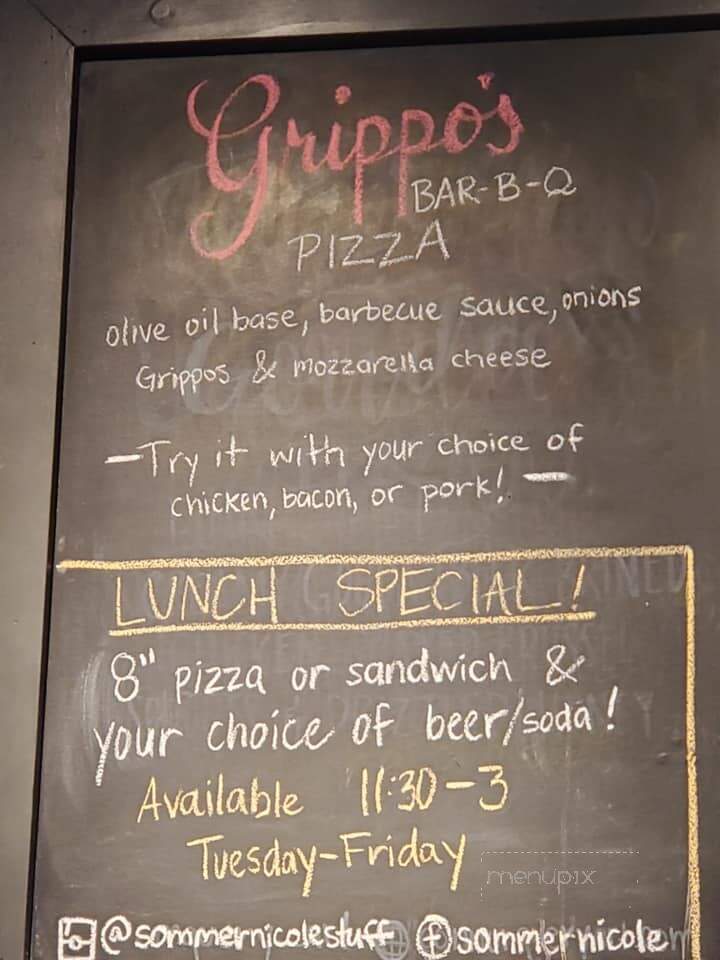 Grippo's
BAR-B-Q
PIZZA
olive oil base, barbecue sauce, onions
Grippos & mozzarella cheese
—Try it with your choice of
chicken, bacon, or pork! —
LUNCH SPECIAL!
8" pizza or sandwich &
your choice of beer/soda!
Available 11:30-3
Tuesday-Friday
menupix
@sommernicolestuff sommernicole